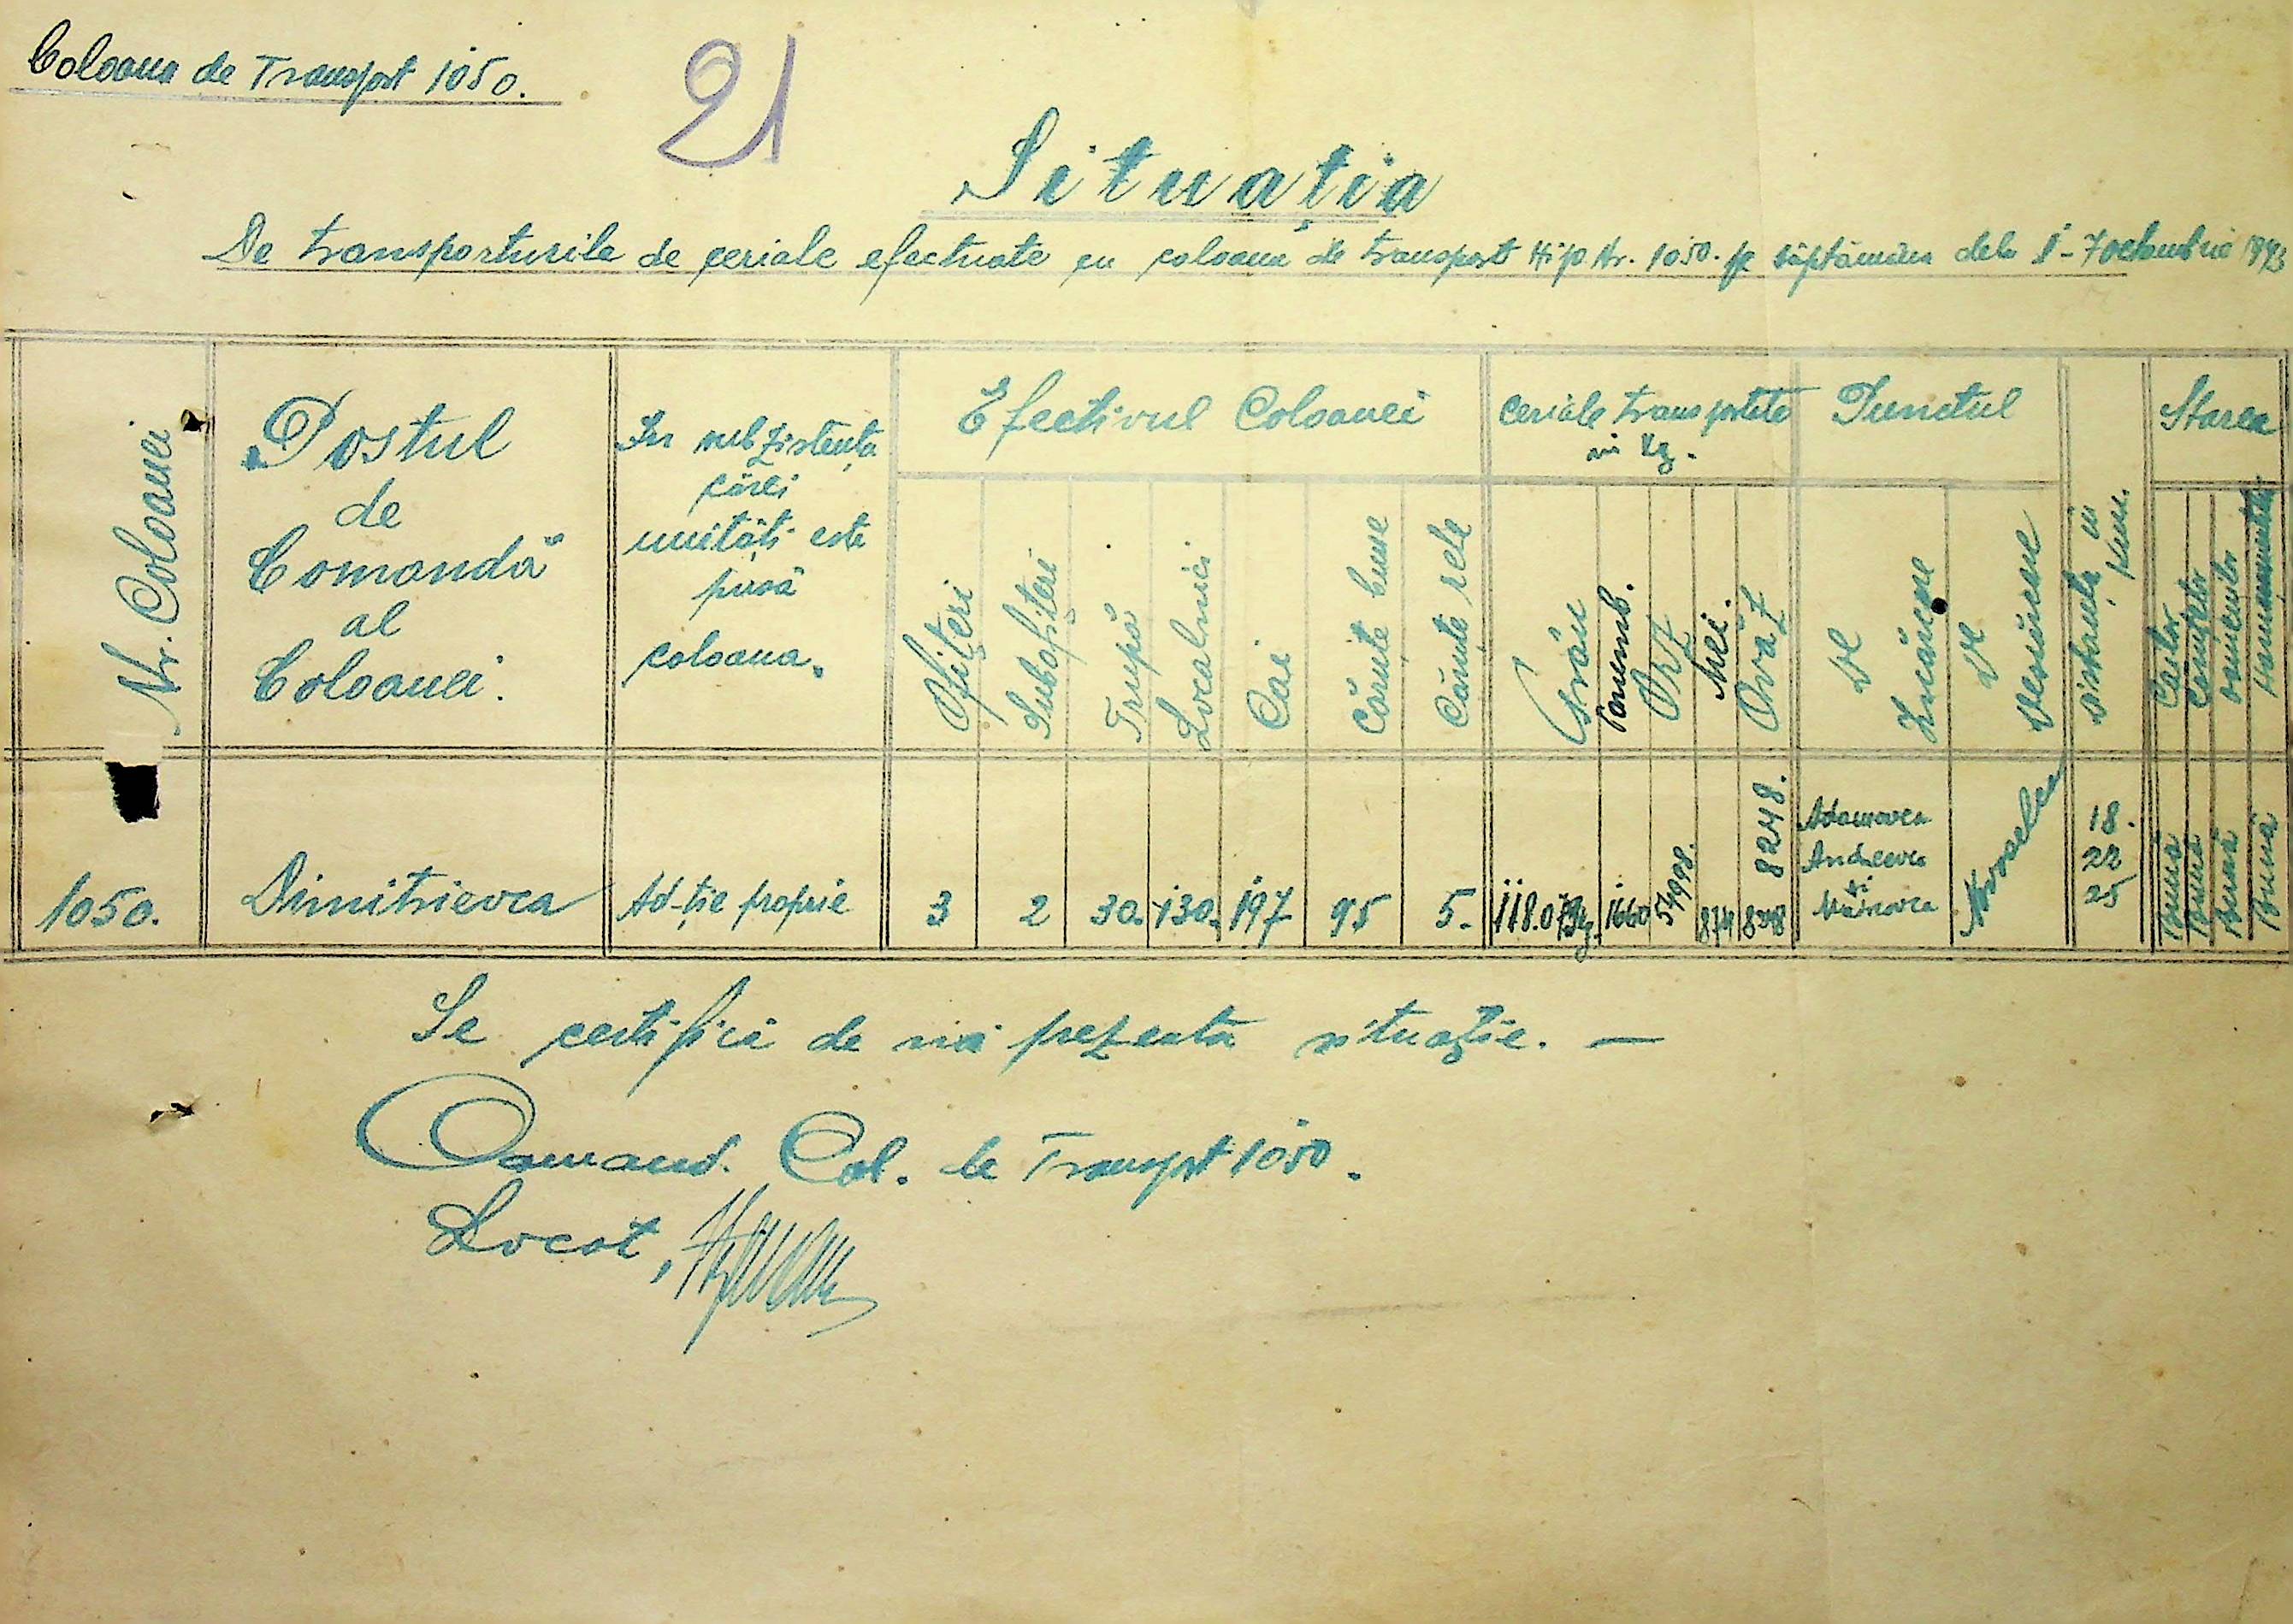 Coloana de Transport 1050.
21
Situația
De transporturile de ceriale efectuate cu coloana de transport Hipo Nr. 1050. pe săptămâna dela 1-7 octombrie 1943
Nr. Coloanei
Postul
de
Comandă
al
Coloanei.
In subzistența
cărei
unități este
pusă
coloana.
Efectivul Coloanei
Ofițeri
Subofițeri
Trupă
Localnici
Cai
Căruțe bune
Căruțe rele
Ceriale transportate
in Kg.
Grâu
Porumb.
Orz
Mei.
Ovăz
Punctul
de
Încărcare
de
Descărcare
Distanța in
Kmm.
Starea
Cailor
Căruțelor
oamenilor
1050.
Dimitrievca
Ad-ție proprie
3
2
30.
130.
197
95
5.
1660
54998.
874
8248
8248.
Adamovca
Andreevca
și
Novoselca
18.
22
25
bună
bună
bună
bună
Se certifică de noi prezenta situație. —
Comand. Col. de Transport 1050.
Locot,